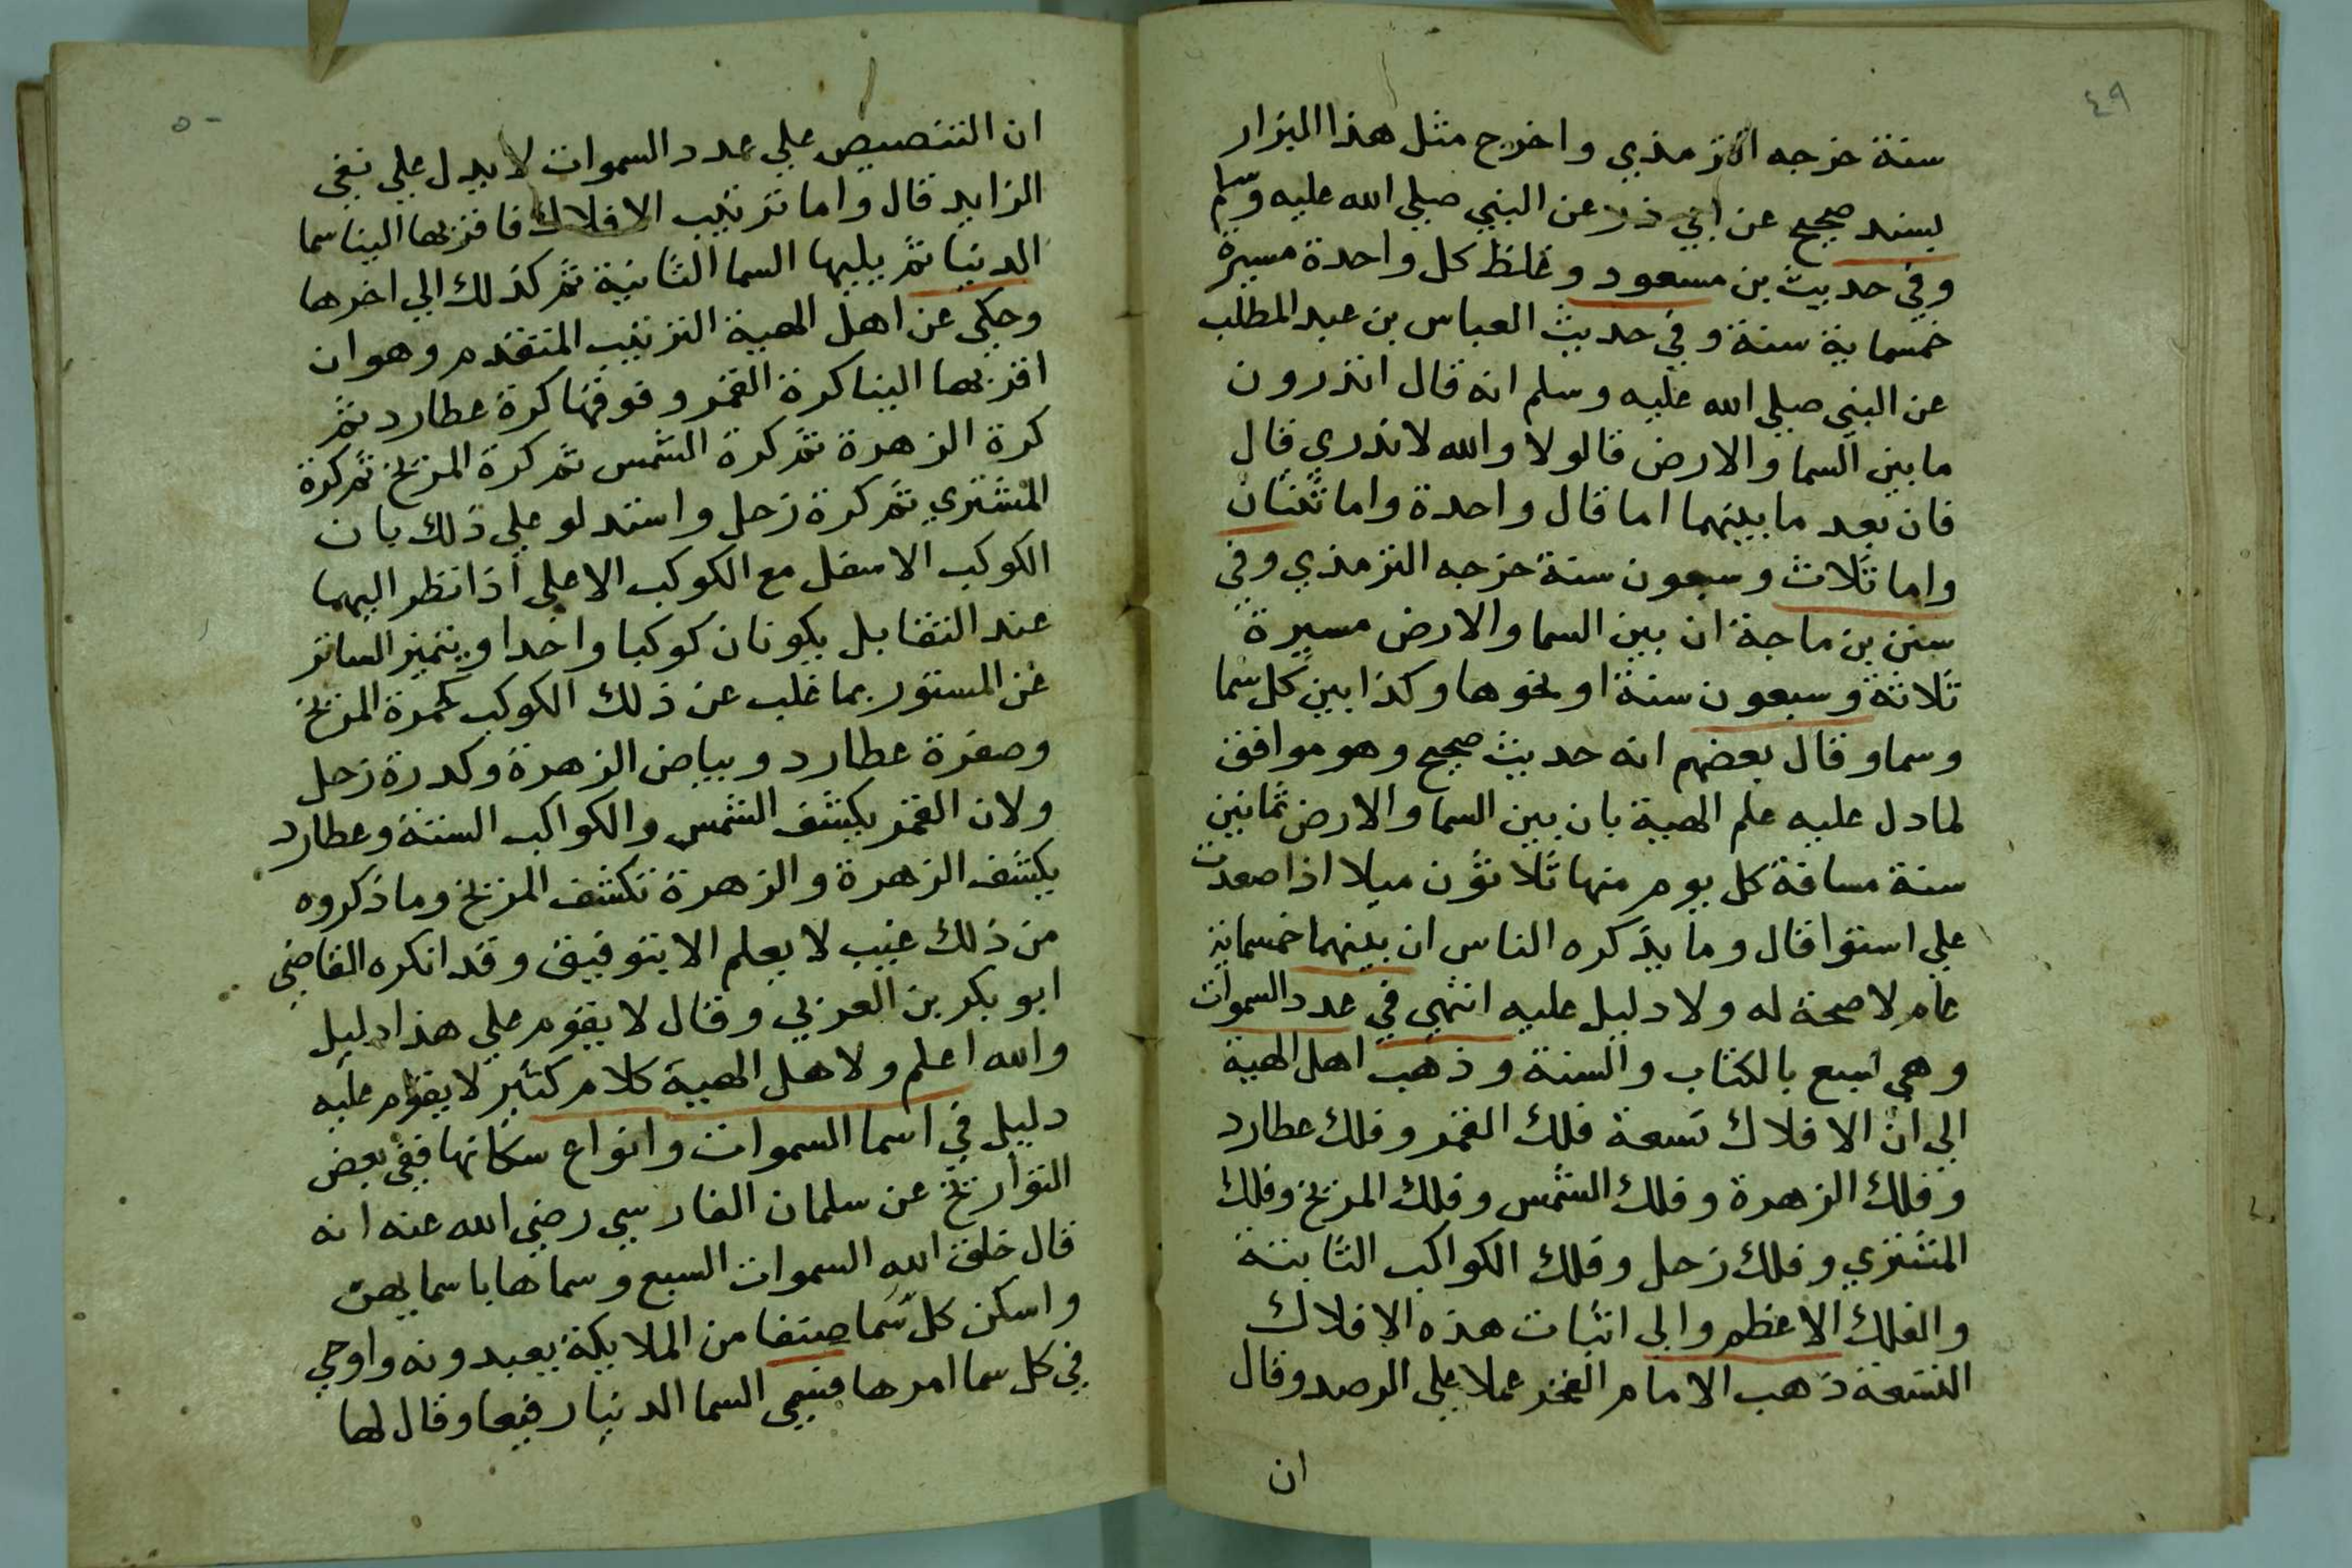 ٤٩
سنة خرجه الترمذي واخرج مثل هذا البزار
بسند صحيح عن ابي ذر عن النبي صلي الله عليه وسلم
وفي حديث بن مسعود وغلظ كل واحدة مسيرة
خمسماية سنة وفي حديث العباس بن عبد المطلب
عن النبي صلي الله عليه وسلم انه قال اتدرون
ما بين السما والارض قالو لا والله لا ندري قال
فان بعد ما بينهما اما قال واحدة واما ثنتان
واما ثلاث وسبعون سنة خرجه الترمذي وفي
سنن بن ماجة ان بين السما والارض مسيرة
ثلاثة وسبعون سنة او نحوها وكذا بين كل سما
وسما وقال بعضهم انه حديث صحيح وهو موافق
لما دل عليه علم الهية بان بين السما والارض ثمانين
سنة مسافة كل يوم منها ثلاثون ميلا اذا صعدت
علي استوا قال وما يذكره الناس ان بينهما خمسماية
عام لا صحة له ولا دليل عليه انتهي في عدد السموات
وهي سبع بالكتاب والسنة وذهب اهل الهية
الي ان الافلاك تسعة فلك القمر وفلك عطارد
وفلك الزهرة وفلك الشمس وفلك المريخ وفلك
المشتري وفلك زحل وفلك الكواكب الثابتة
والفلك الاعظم والي اثبات هذه الافلاك
التسعة ذهب الامام الفخر عملا علي الرصد وقال
ان
٥٠
ان التنصيص علي عدد السموات لا يدل علي نفي
الزايد قال واما ترتيب الافلاك فاقربها الينا سما
الدنيا ثم يليها السما الثانية ثم كذلك الي اخرها
وحكي عن اهل الهية الترتيب المتقدم وهو ان
اقربها الينا كرة القمر وفوقها كرة عطارد ثم
كرة الزهرة ثم كرة الشمس ثم كرة المريخ ثم كرة
المشتري ثم كرة زحل واستدلو علي ذلك بان
الكوكب الاسفل مع الكوكب الاعلي اذا نظر اليهما
عند التقابل يكونان كوكبا واحدا ويتميز الساتر
عن المستور بما غلب عن ذلك الكوكب كحمرة المريخ
وصفرة عطارد وبياض الزهرة وكدرة زحل
ولان القمر يكشف الشمس والكواكب الستة وعطارد
يكشف الزهرة والزهرة تكشف المريخ وما ذكروه
من ذلك غيب لا يعلم الا بتوفيق وقد انكره القاضي
ابو بكر بن العربي وقال لا يقوم علي هذا دليل
والله اعلم ولاهل الهية كلام كثير لا يقوم عليه
دليل في اسما السموات وانواع سكانها ففي بعض
التواريخ عن سلمان الفارسي رضي الله عنه انه
قال خلق الله السموات السبع وسماها باسمايهن
واسكن كل سما صنفا من الملايكة يعبدونه واوحي
في كل سما امرها فسمي السما الدنيا رفيعا وقال لها